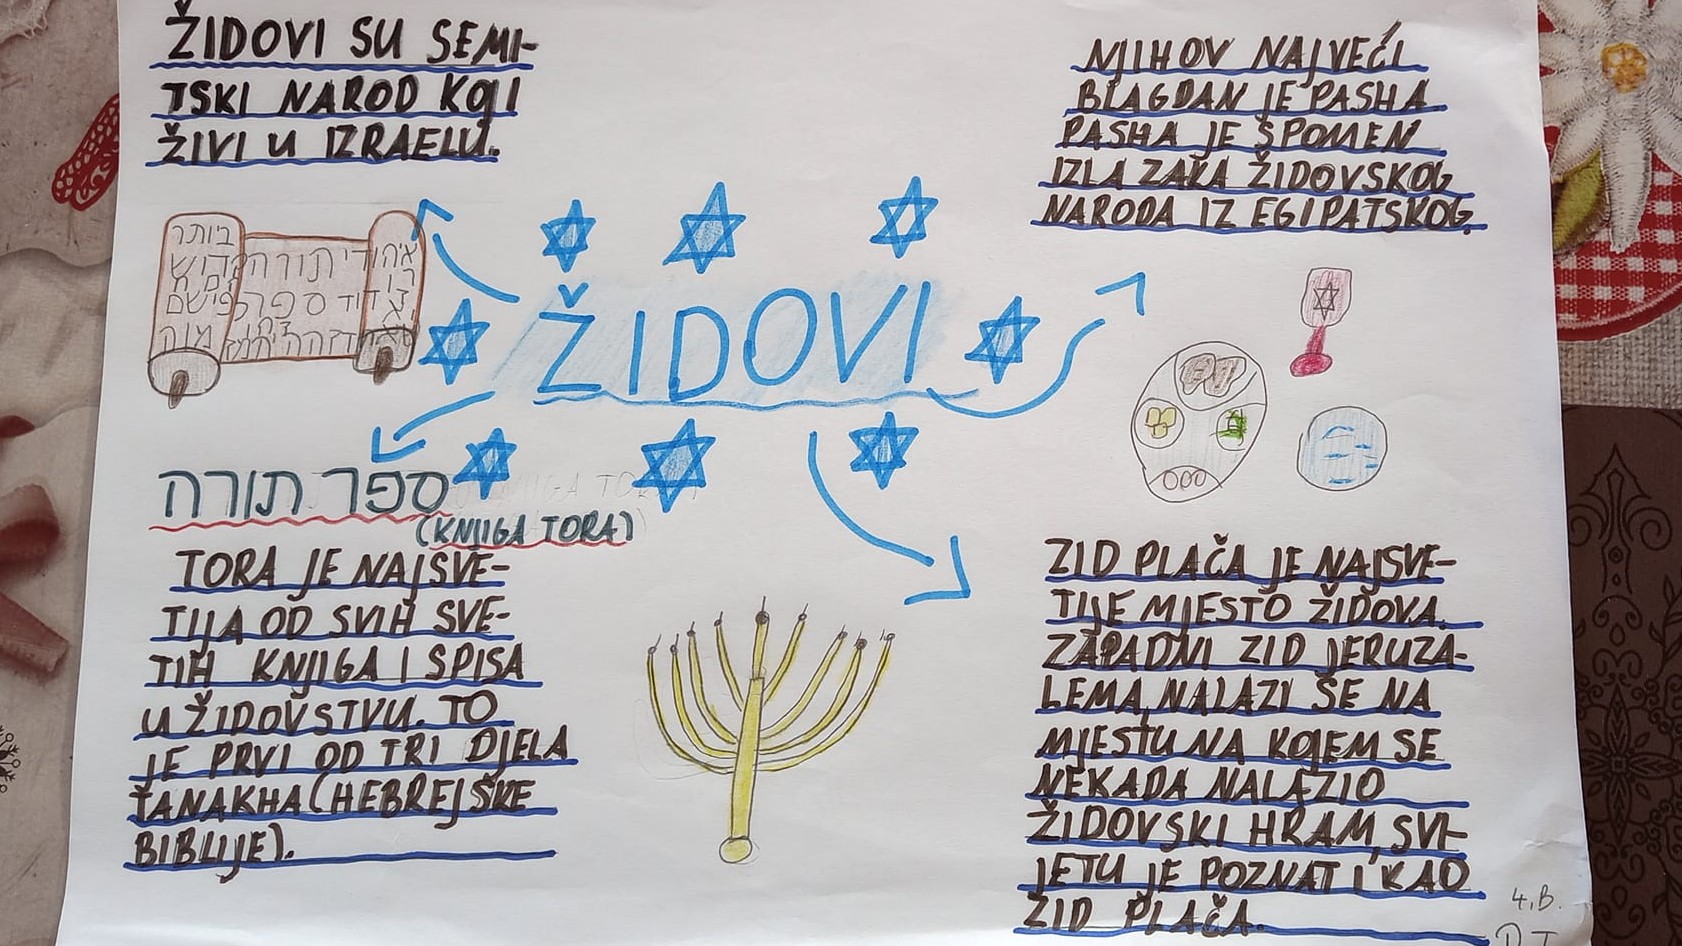 ŽIDOVI SU SEMI-
TSKI NAROD KOJI
ŽIVI U IZRAELU.
NJIHOV NAJVEĆI
BLAGDAN JE PASHA.
PASHA JE SPOMEN
IZLAZAKA ŽIDOVSKOG
NARODA IZ EGIPATSKOG.
ŽIDOVI
ביותר
ספר תורה
(KNJIGA TORA)
TORA JE NAJSVE-
TIJA OD SVIH SVE-
TIH KNJIGA I SPISA
U ŽIDOVSTVU. TO
JE PRVI OD TRI DJELA
TANAKHA (HEBREJSKE
BIBLIJE).
ZID PLAČA JE NAJSVE-
TIJE MJESTO ŽIDOVA.
ZAPADNI ZID JERUZA-
LEMA, NALAZI SE NA
MJESTU NA KOJEM SE
NEKADA NALAZIO
ŽIDOVSKI HRAM, SVI-
JETU JE POZNAT I KAO
ZID PLAČA.
4.B.